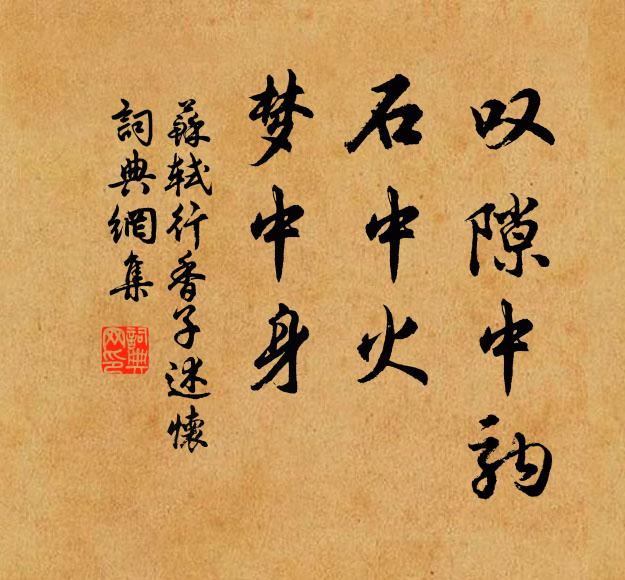 叹隙中驹
石中火
梦中身
蘇軾行香子述懷
詞典網集
詞典网印